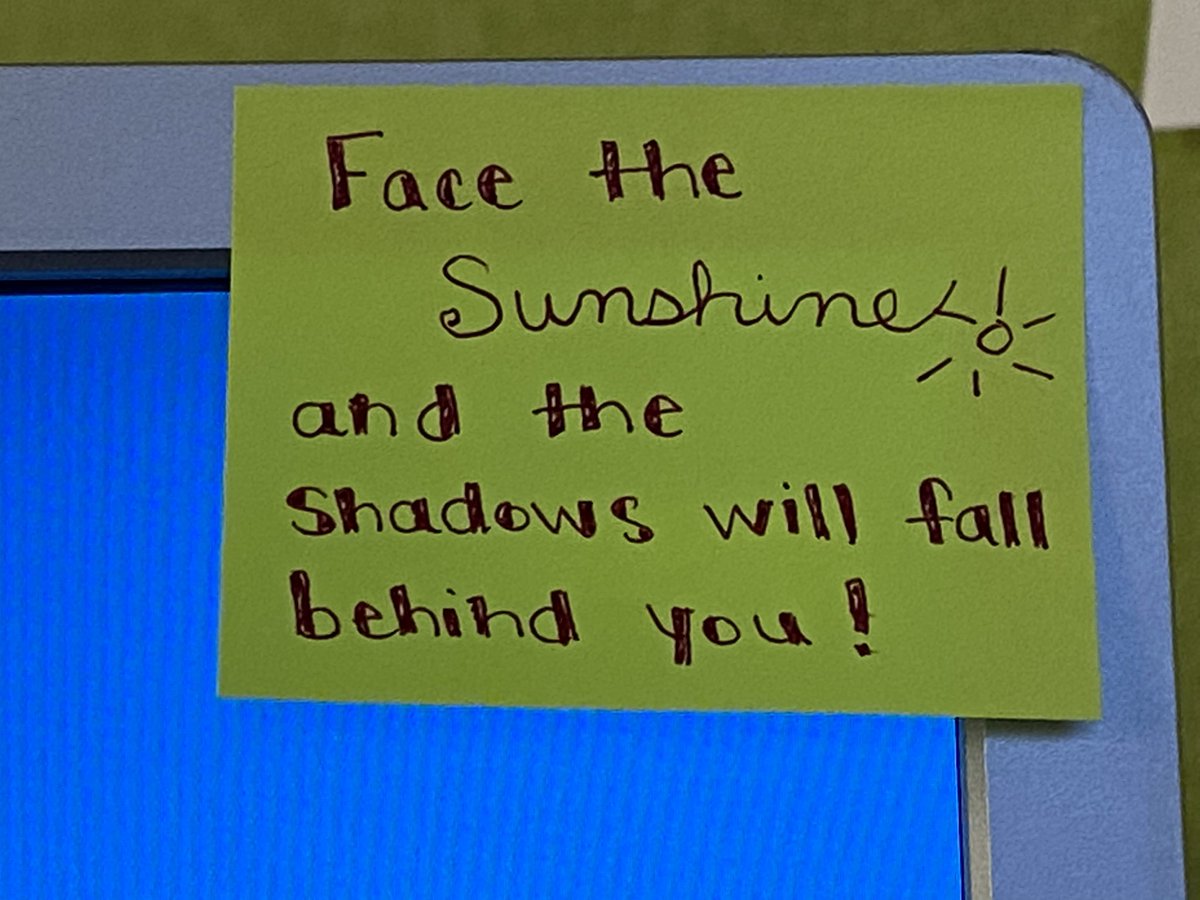 Face the
Sunshine
and the
shadows will fall
behind you!